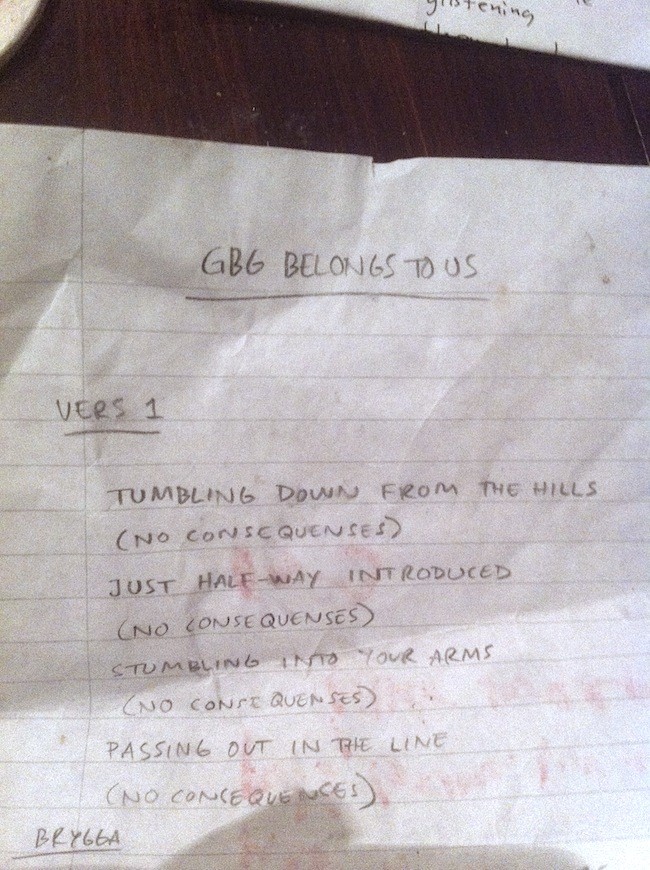 glistening
GBG BELONGS TO US
VERS 1
TUMBLING DOWN FROM THE HILLS
(NO CONSEQUENSES)
JUST HALF-WAY INTRODUCED
(NO CONSEQUENSES)
STUMBLING INTO YOUR ARMS
(NO CONSEQUENSES)
PASSING OUT IN THE LINE
(NO CONCEQUENCES)
BRYGGA